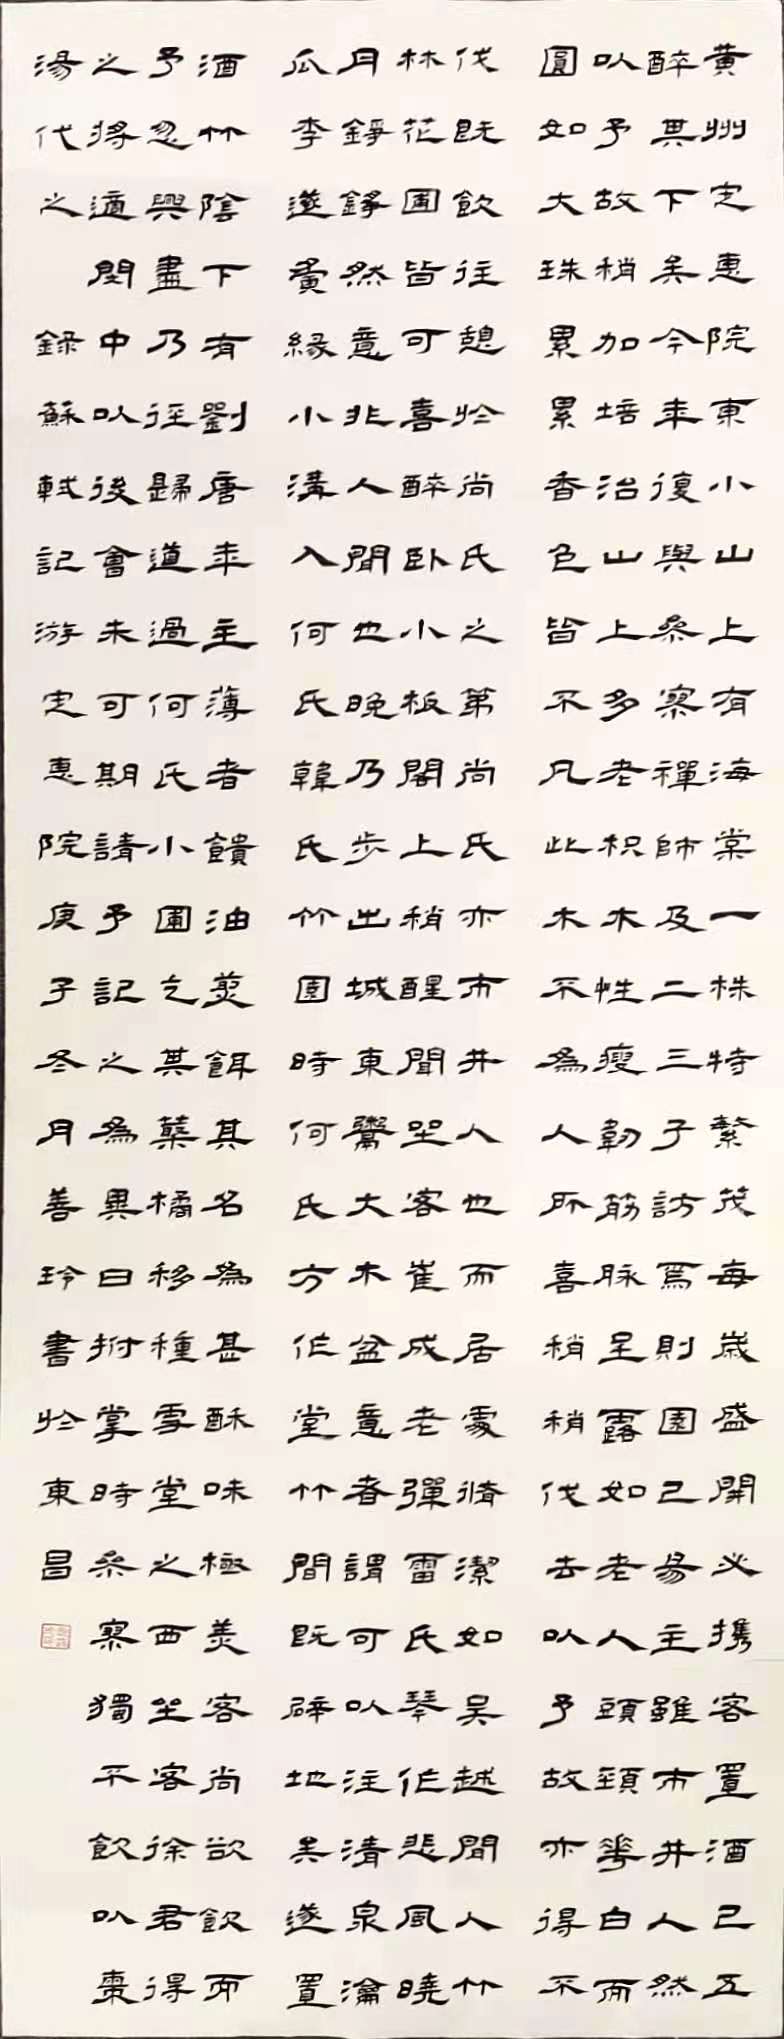 黄州定惠院東小山上有海棠一株特繁茂每歲盛開必携客置酒已五
醉其下矣今年復與參寥禪師及二三子訪焉則園已易主雖市井人然
以予故稍加培治山上多老枳木性瘦韌筋脉呈露如老人頭頸華白而
圓如大珠累累香色皆不凡此木不為人所喜稍稍伐去以予故亦得不
伐既飲往憩於尚氏之第尚氏亦市井人也而居處脩潔如吳越間人竹
林花圃皆可喜醉卧小板閣上稍醒聞坐客崔成老彈雷氏琴作悲風曉
月錚錚然意非人間也晚乃步出城東鬻大木盆意者謂可以注清泉瀹
瓜李遂夤緣小溝入何氏韓氏竹園時何氏方作堂竹間既辟地矣遂置
酒竹陰下有劉唐年主薄者饋油煎餌其名為甚酥味極美客尚欲飲而
予忽興盡乃徑歸道過何氏小圃乞其藂橘移種雪堂之西坐客徐君得
之將適閩中以後會未可期請予記之為異日拊掌時參寥獨不飲以棗
湯代之 錄蘇軾記游定惠院庚子冬月善玲書於東昌